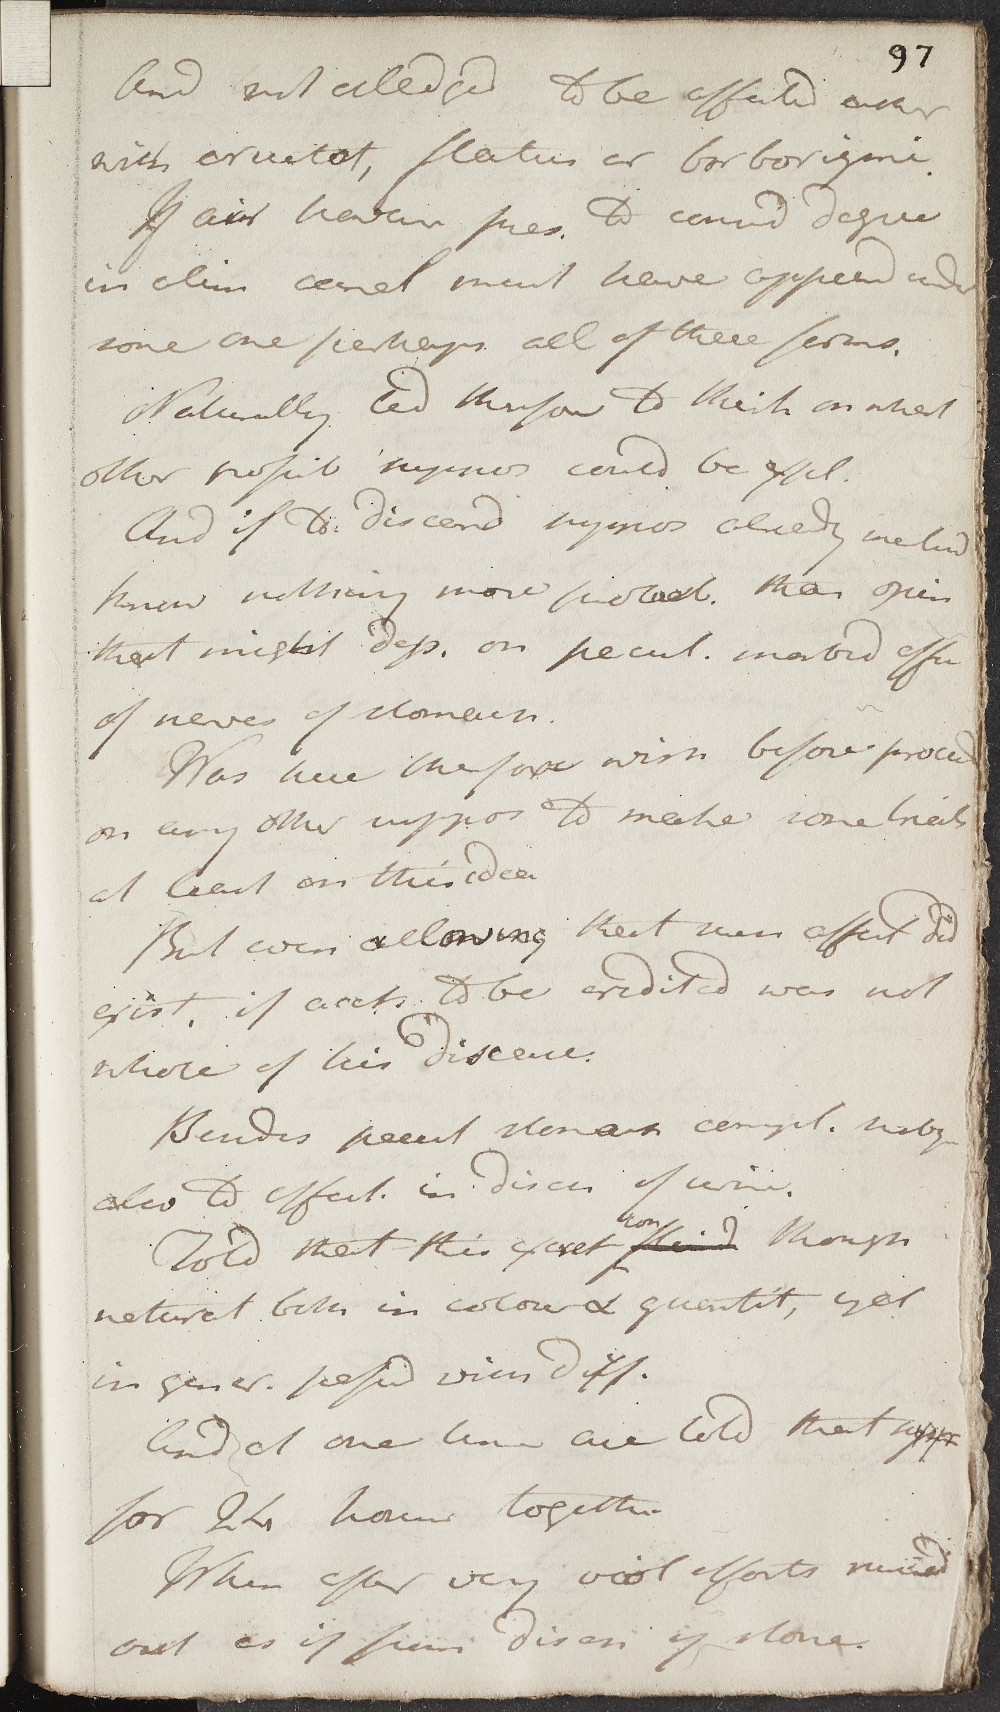 97
And not alledged to be affected either
with eructat, flatus or borborigmi.
If air however pres. to consid degree
in alim canal must have appeard under
some one perhaps all of these forms.
Naturally led therefore to think on what
other possib suppos could be expl.
And if to discard suppos already mentiond
know nothing more probabl. than opin
that might dep. on pecul. morbid affec
of nerves of stomach.
Was here therefore wish before proceed
on any other suppos to make some trials
at least on this idea
But even allowing that such affect did
exist, if accts to be credited was not
whole of his disease.
Besides pecul stomach compl. subj
also to affect. in disch of urin.
Told that this excret con though
natural both in colour & quantit, yet
in gener. passd with diff.
And at one time are told that supp
for 24 hours together
When after very viol efforts
out as if from disch of stone.